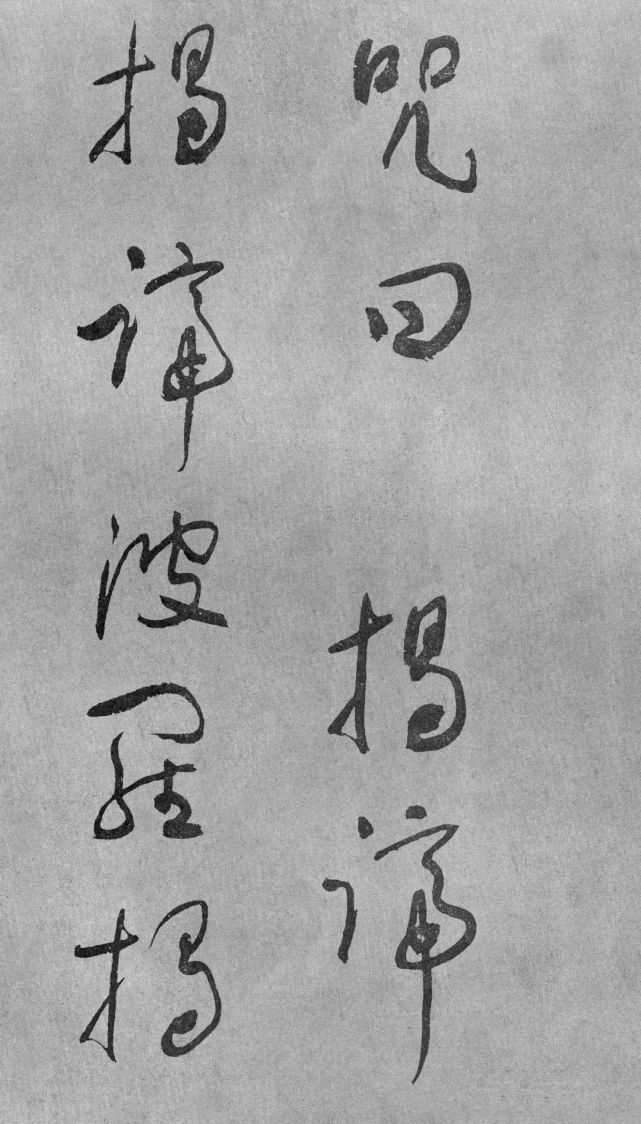 咒曰揭諦
揭諦波羅揭